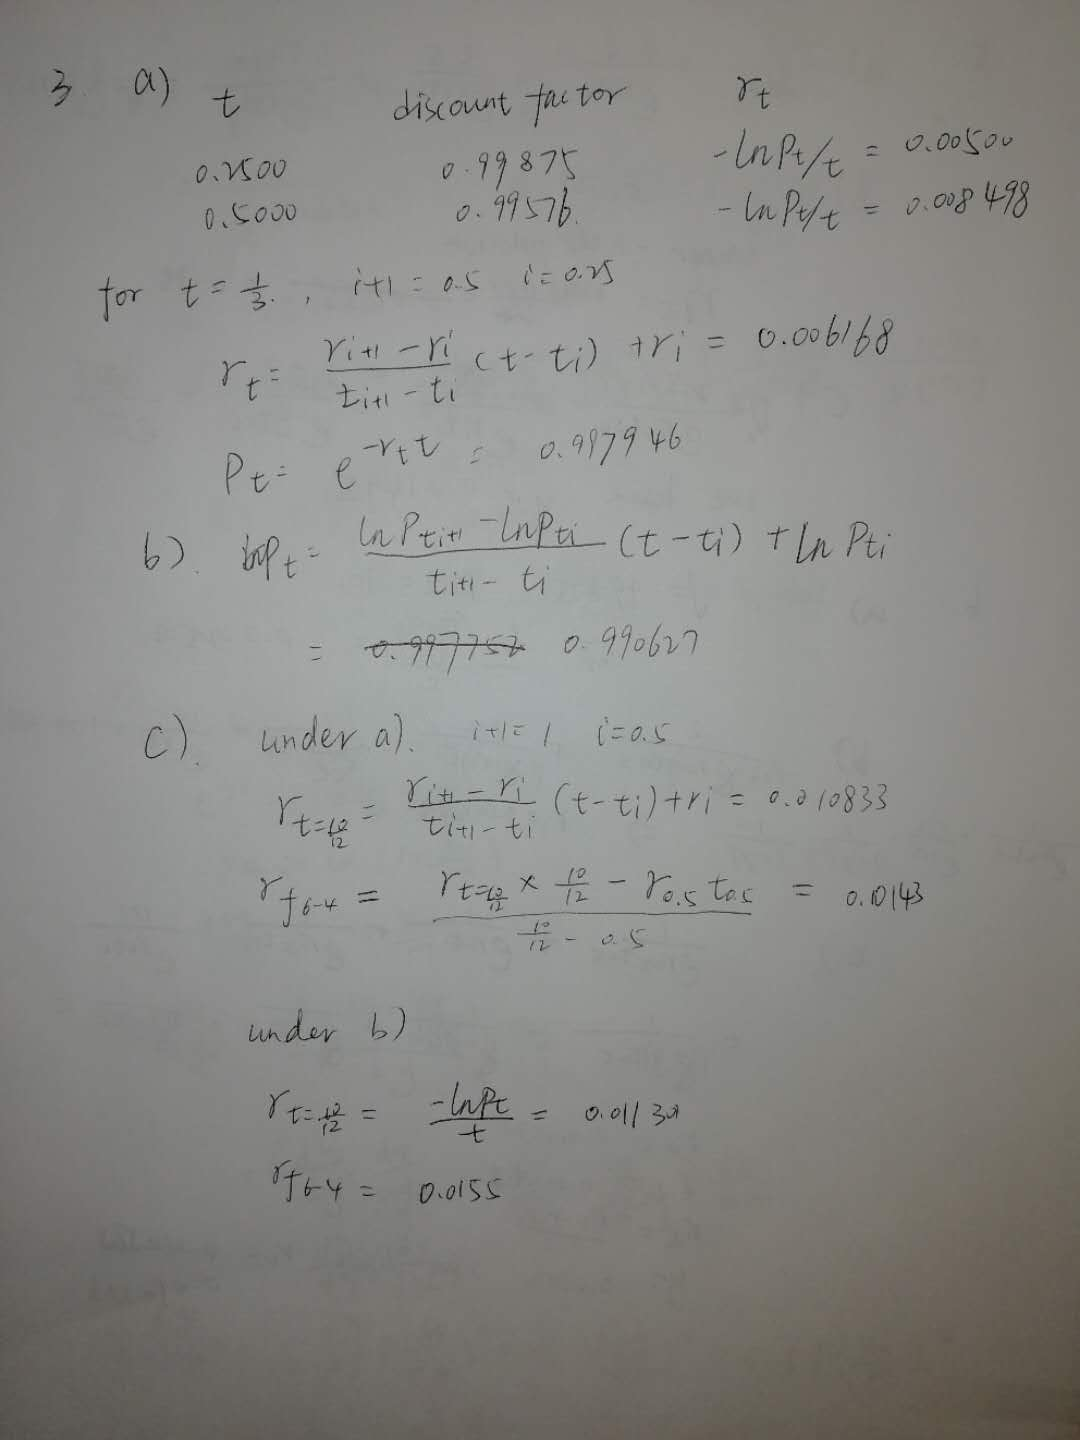 3. a) t discount factor rt
0.2500 0.99875 -lnPt/t = 0.00500
0.5000 0.99576. -lnPt/t = 0.008498
for t = 1/3. , i+1 = 0.5 i = 0.25
rt = (ri+1 - ri)/(ti+1 - ti) (t - ti) + ri = 0.006168
Pt = e^-rt t = 0.997946
b). lnPt = (lnPti+1 - lnPti)/(ti+1 - ti) (t - ti) + ln Pti
= 0.997752 0.990627
c). under a). i+1 = 1 i = 0.5
rt=10/12 = (ri+1 - ri)/(ti+1 - ti) (t - ti) + ri = 0.010833
rf6-4 = (rt=10/12 × 10/12 - r0.5 t0.5)/(10/12 - 0.5) = 0.0143
under b)
rt=10/12 = -lnPt/t = 0.0113
rf6-4 = 0.0155